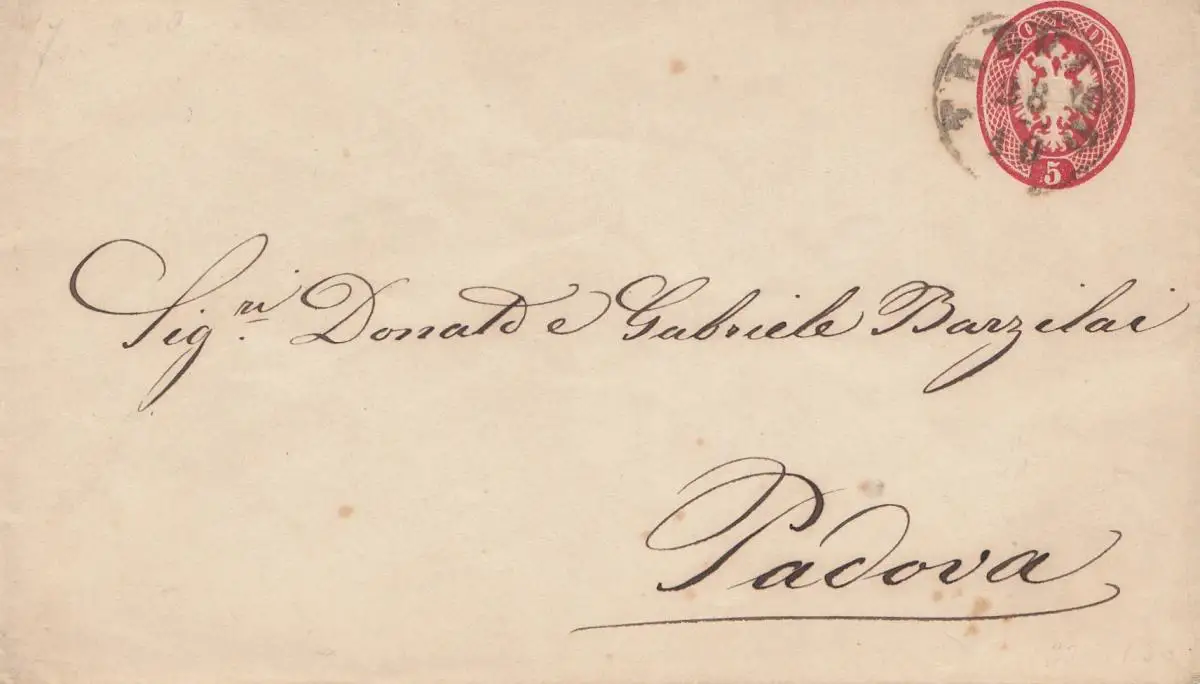 SOLDI
5
Sig.ri Donato e Gabriele Barzilai
Padova